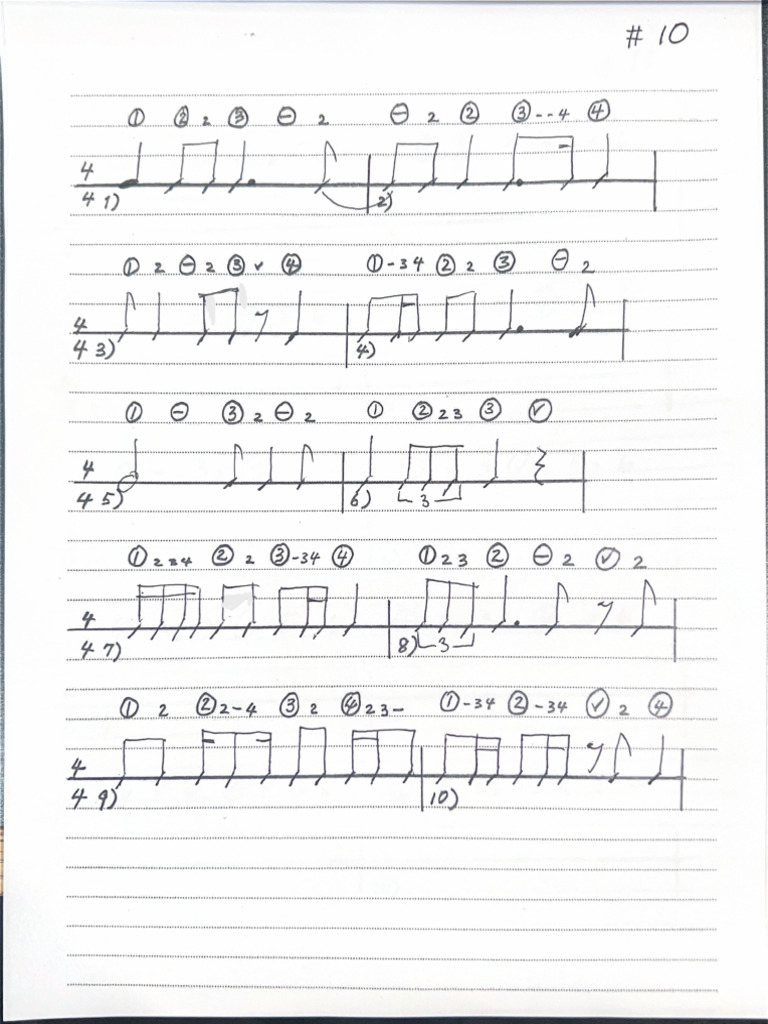 # 10
① ② 2 ③ ⊖ 2 ⊖ 2 ② ③--4 ④
4
4 1) 2)
① 2 ⊖ 2 ③ ✓ ④ ①-34 ② 2 ③ ⊖ 2
4
4 3) 4)
① ⊖ ③ 2 ⊖ 2 ① ② 2 3 ③ ✓
4
4 5) 6) 3
① 2 3 4 ② 2 ③-34 ④ ① 2 3 ② ⊖ 2 ✓ 2
4
4 7) 8) 3
① 2 ② 2-4 ③ 2 ④ 2 3- ①-34 ②-34 ✓ 2 ④
4
4 9) 10)